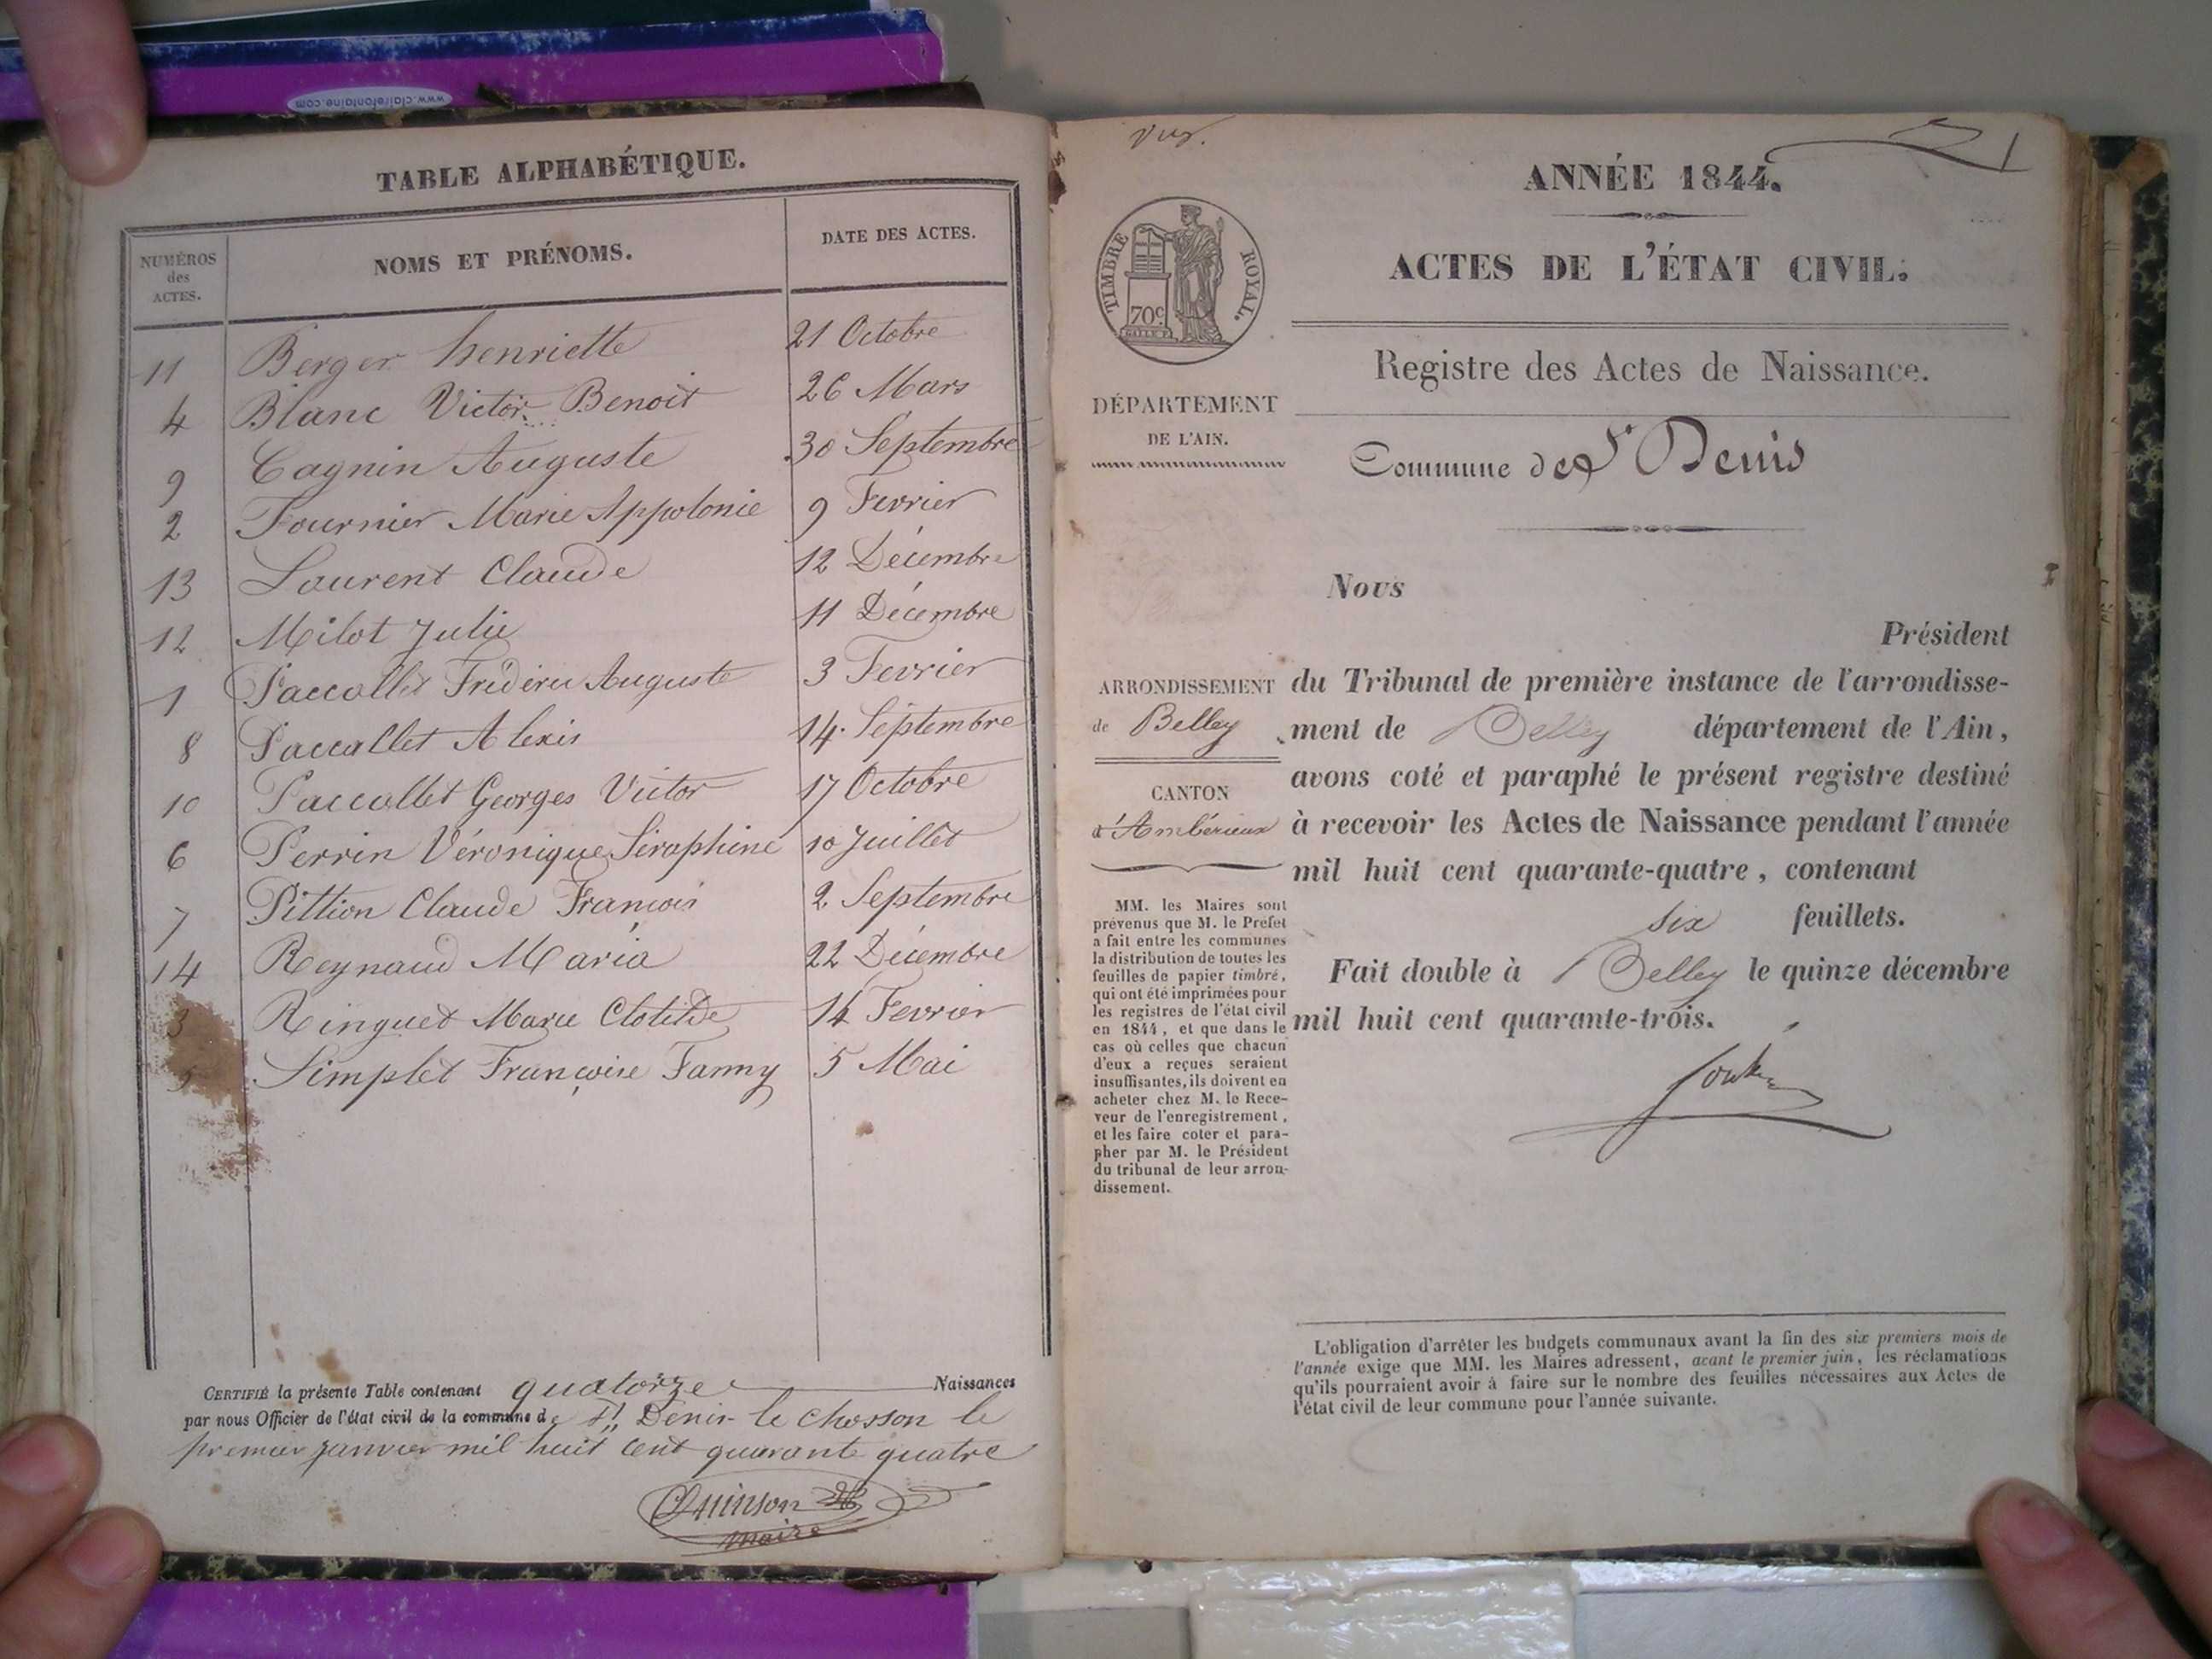 www.clairefontaine.com
TABLE ALPHABÉTIQUE.
NUMÉROS
des
ACTES.
NOMS ET PRÉNOMS.
DATE DES ACTES.
11 Berger henriette 21 Octobre
4 Blanc Victor Benoit 26 Mars
9 Cagnin Auguste 30 Septembre
2 Fournier Marie Appolonie 9 Fevrier
13 Laurent Claude 12 Décembre
12 Milot Julie 11 Décembre
1 Paccallet Fréderic Auguste 3 Fevrier
8 Paccallet Alexis 14. Septembre
10 Paccallet Georges Victor 17 Octobre
6 Perrin Véronique Séraphine 10 Juillet
7 Pittion Claude François 2 Septembre
14 Reynaud Maria 22 Décembre
3 Ringuet Marie Clotilde 14 Fevrier
5 Simplet Françoise Fanny 5 Mai
CERTIFIÉ la présente Table contenant quatorze Naissances
par nous Officier de l'état civil de la commune de St. Denis le Chosson le
premier janvier mil huit cent quarante quatre
Quinson
maire
vu
1
ANNÉE 1844.
TIMBRE ROYAL.
70c
ACTES DE L'ÉTAT CIVIL.
Registre des Actes de Naissance.
DÉPARTEMENT
DE L'AIN.
Commune de St Denis
Nous
Président
ARRONDISSEMENT
de Belley
CANTON
d'Ambérieux
du Tribunal de première instance de l'arrondisse-
ment de Belley département de l'Ain,
avons coté et paraphé le présent registre destiné
à recevoir les Actes de Naissance pendant l'année
mil huit cent quarante-quatre, contenant
six feuillets.
Fait double à Belley le quinze décembre
mil huit cent quarante-trois.
MM. les Maires sont
prévenus que M. le Préfet
a fait entre les communes
la distribution de toutes les
feuilles de papier timbré,
qui ont été imprimées pour
les registres de l'état civil
en 1844, et que dans le
cas où celles que chacun
d'eux a reçues seraient
insuffisantes, ils doivent en
acheter chez M. le Rece-
veur de l'enregistrement,
et les faire coter et para-
pher par M. le Président
du tribunal de leur arron-
dissement.
L'obligation d'arrêter les budgets communaux avant la fin des six premiers mois de
l'année exige que MM. les Maires adressent, avant le premier juin, les réclamations
qu'ils pourraient avoir à faire sur le nombre des feuilles nécessaires aux Actes de
l'état civil de leur commune pour l'année suivante.